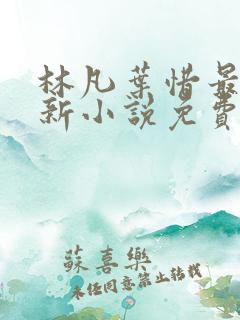 林凡葉惜最
新小說免費
蘇喜樂
未经同意禁止转载